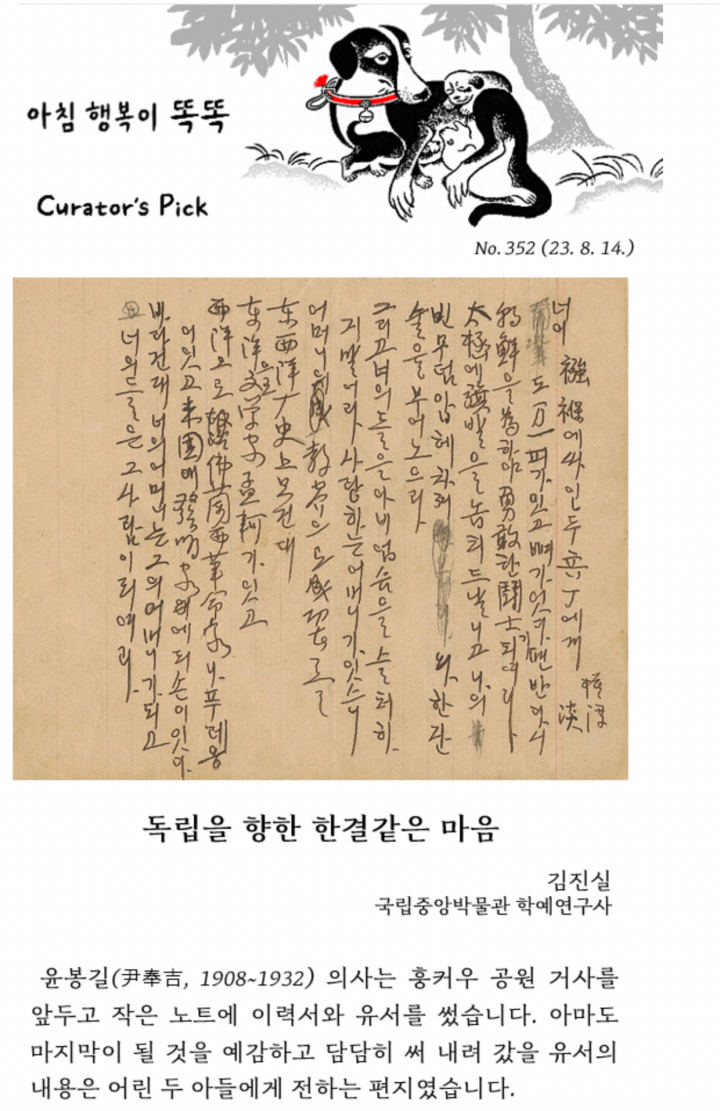 아침 행복이 똑똑
Curator's Pick
No. 352 (23. 8. 14.)
너이 襁褓에 싸인 두 兵丁에게
도 万一 피가 잇고 뼈가 잇다면 반다시
朝鮮을 爲하야 勇敢한 鬪士되여라
太極에 旗발을 놉피 드날니고 나의
빈 무덤 압헤 차져 와 한 잔
술을 부어노으라
그리고 너의들은 아비 업슴을 슬퍼하
지 말어라 사랑하는 어머니가 잇스니
어머니의 敎育으로 成功者를
东西洋 史上 보건대
東洋으로 文学家 孟軻가 잇고
西洋으로 佛蘭西 革命家 나푸레옹
이 잇고 米國에 發明家 에되손이 잇다
바라건대 너의 어머니는 그의 어머니가 되고
너의들은 그 사람이 되여라
독립을 향한 한결같은 마음
김진실
국립중앙박물관 학예연구사
윤봉길(尹奉吉, 1908~1932) 의사는 훙커우 공원 거사를
앞두고 작은 노트에 이력서와 유서를 썼습니다. 아마도
마지막이 될 것을 예감하고 담담히 써 내려 값을 유서의
내용은 어린 두 아들에게 전하는 편지였습니다.